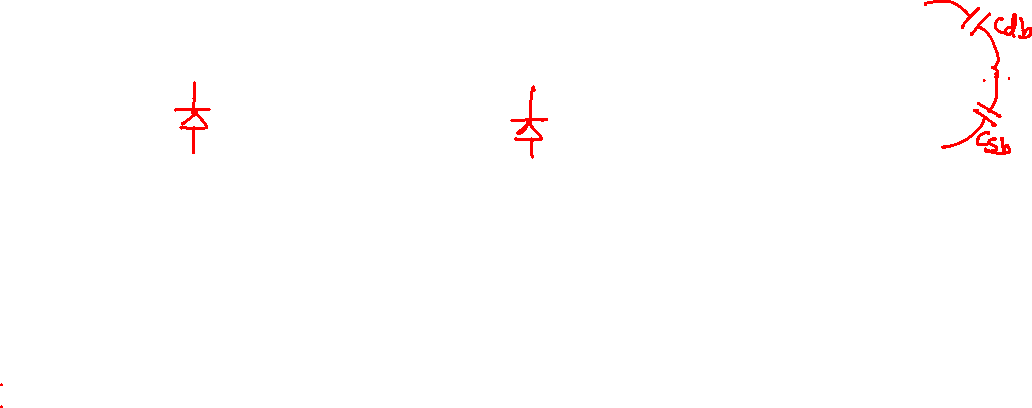 Cdb
Csb